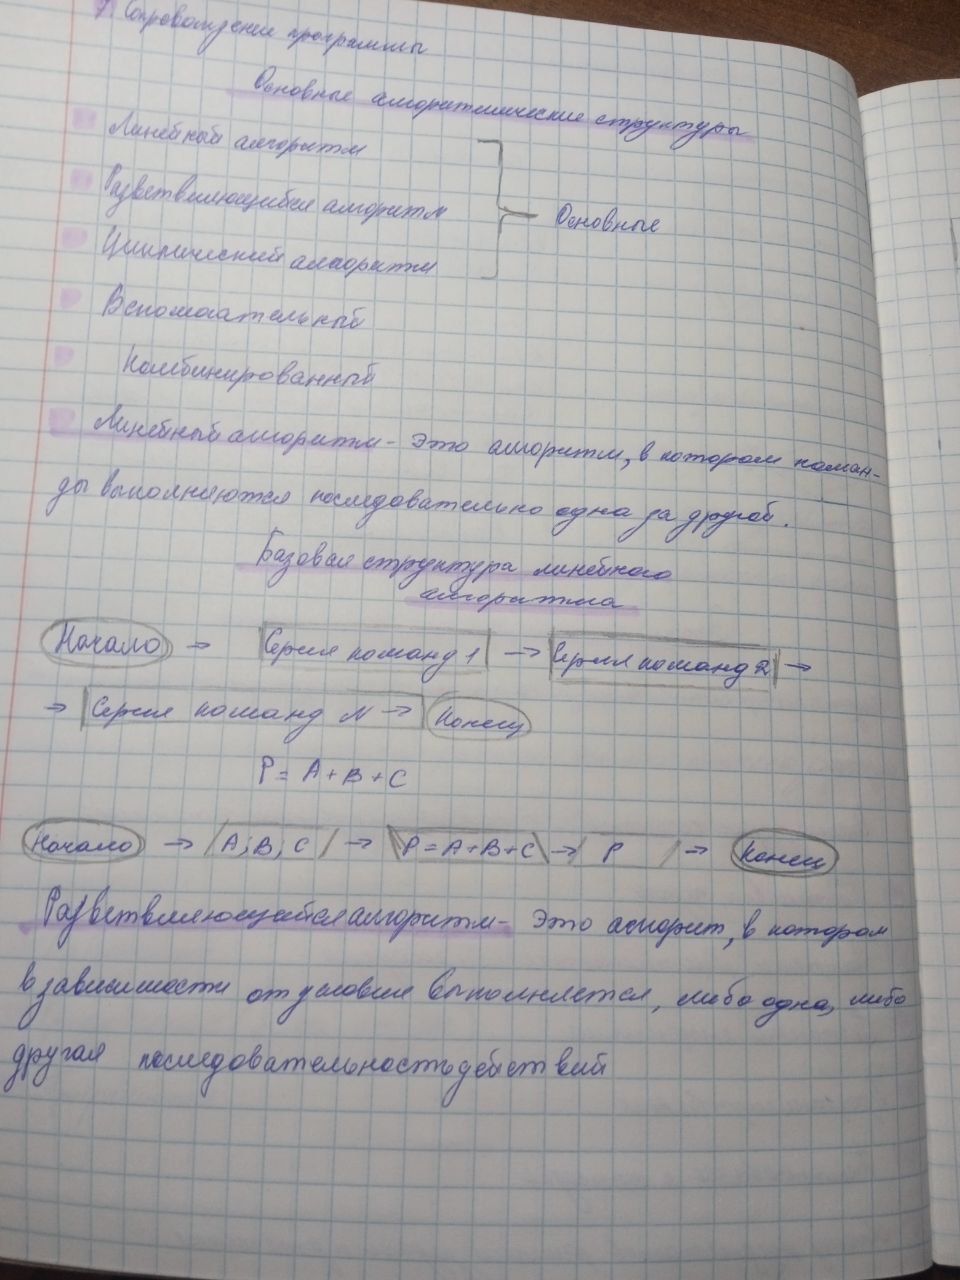 7 Сопровождение программы
Основные алгоритмические структуры
Линейный алгоритм
Разветвляющийся алгоритм
Циклический алгоритм
Основные
Вспомогательный
Комбинированный
Линейный алгоритм - это алгоритм, в котором коман-
ды выполняются последовательно одна за другой.
Базовая структура линейного
алгоритма
Начало → Серия команд 1 → Серия команд 2 →
→ Серия команд N → Конец
P = A + B + C
Начало → A; B; C → P = A + B + C → P → Конец
Разветвляющийся алгоритм - это алгорит, в котором
в зависимости от условия выполняется, либо одна, либо
другая последовательность действий